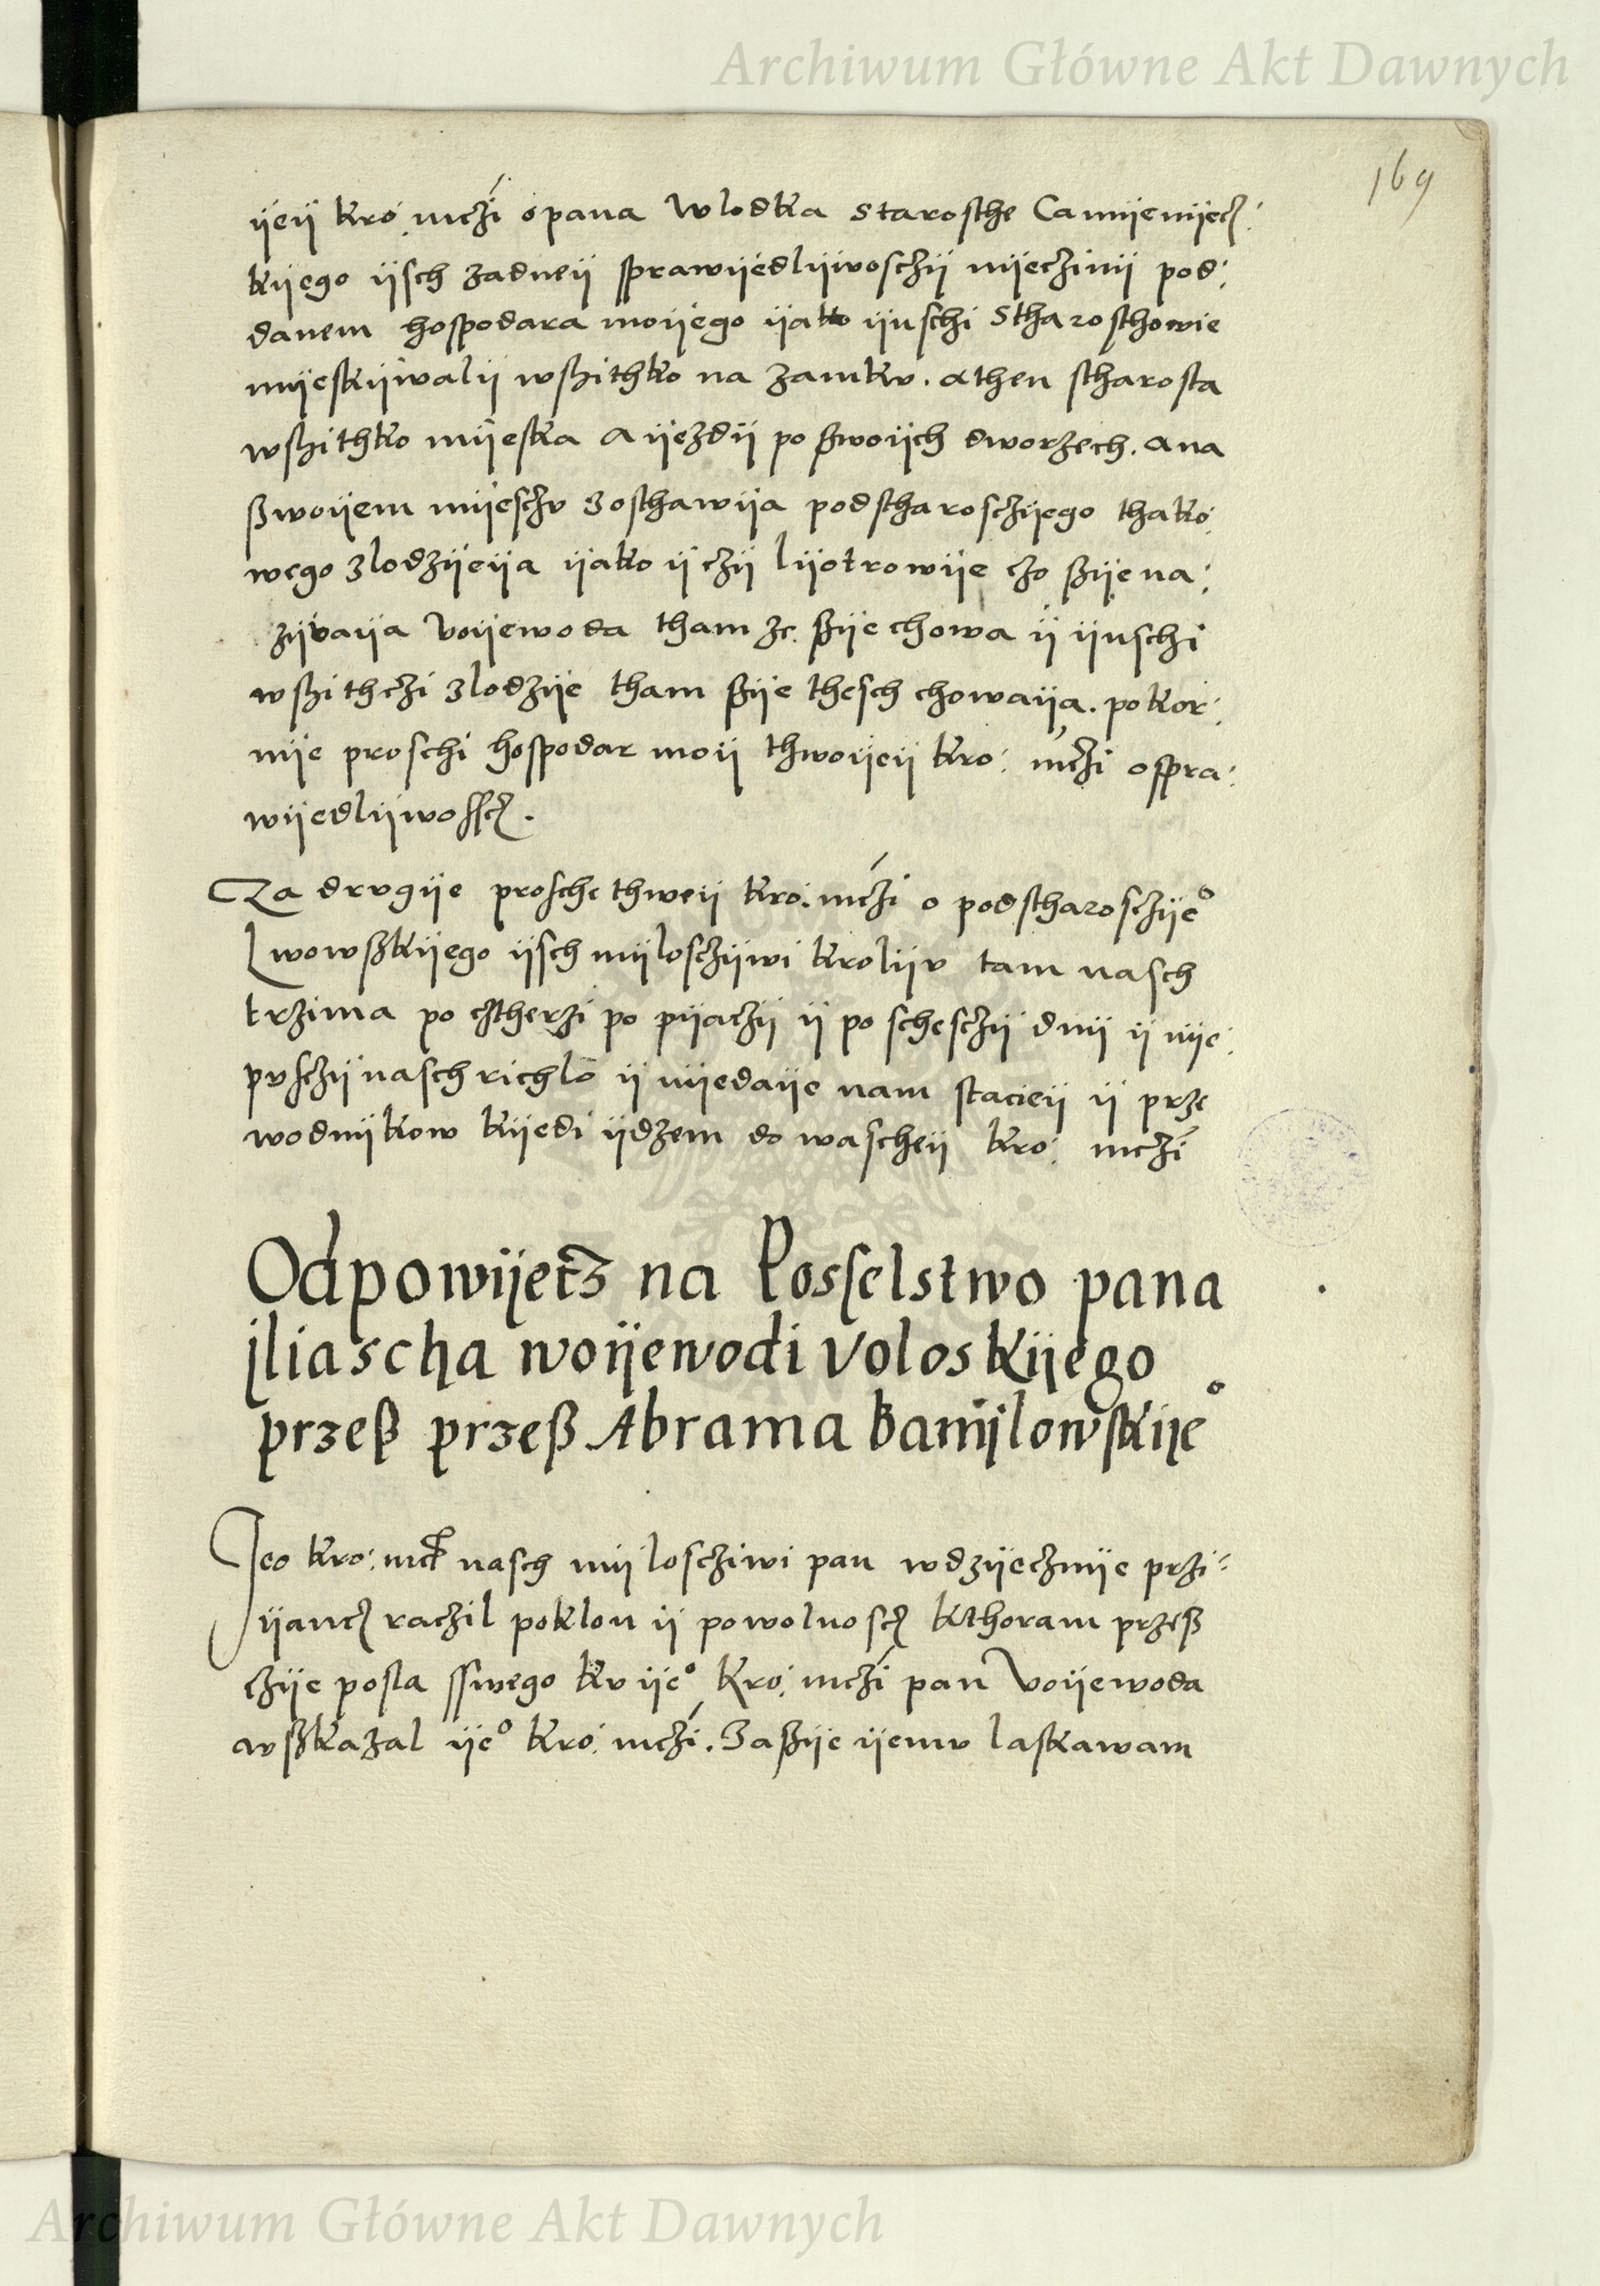 Archiwum Główne Akt Dawnych
169
ijeij kro: mczi o pana Wlodka starosthe Camijenijecz:
kijego ijsch zadneij sprawijedlijwosczij nijeczinij pod:
danem hospodara moijego ijako ijnschi Stharosthowie
mijeskijwalij wshithko na zamkv. athen stharosta
wshithko mijeska a ijezdij po ßwoijch dworzech. ana
ßwoijem mijesczv zosthawija podstharosczijego thako:
wego zlodzijeija ijako ij czij lijotrowije czo ßije na:
zijvaija voijewoda tham ze ßije chowa ij ijnschi
wshithczi zlodzije tham ßije thesch chowaija. pokor:
nije proschi hospodar moij thwoijeij kro: mczi o spra:
wijedlijwosscz.
Za drvgije prosche thweij kro: mczi o podstharosczijeº
Lwowßkijego ijsch mijlosczijwi krolijv tam nasch
trzima po cztherzi po pijaczij ij po schesczij dnij ij nije:
pvsczij nasch richlo ij nijedaije nam stacieij ij prze
wodnijkow kijedi ijdzem do wascheij kro: mczi
Odpowijetz na Posselstwo pana
jliascha woijewodi voloskijego
przeß przeß Abrama banijlowskijeº
Jeo kro: mcz nasch mijloscziwi pan wdzijecznije przi:
ijancz raczil poklon ij powolnoscz kthoram przeß
czije posla sswego kv ijeº kro: mczi pan voijewoda
wßkazal ijeº kro: mczi. Zaßije ijemv laskawam
Archiwum Główne Akt Dawnych